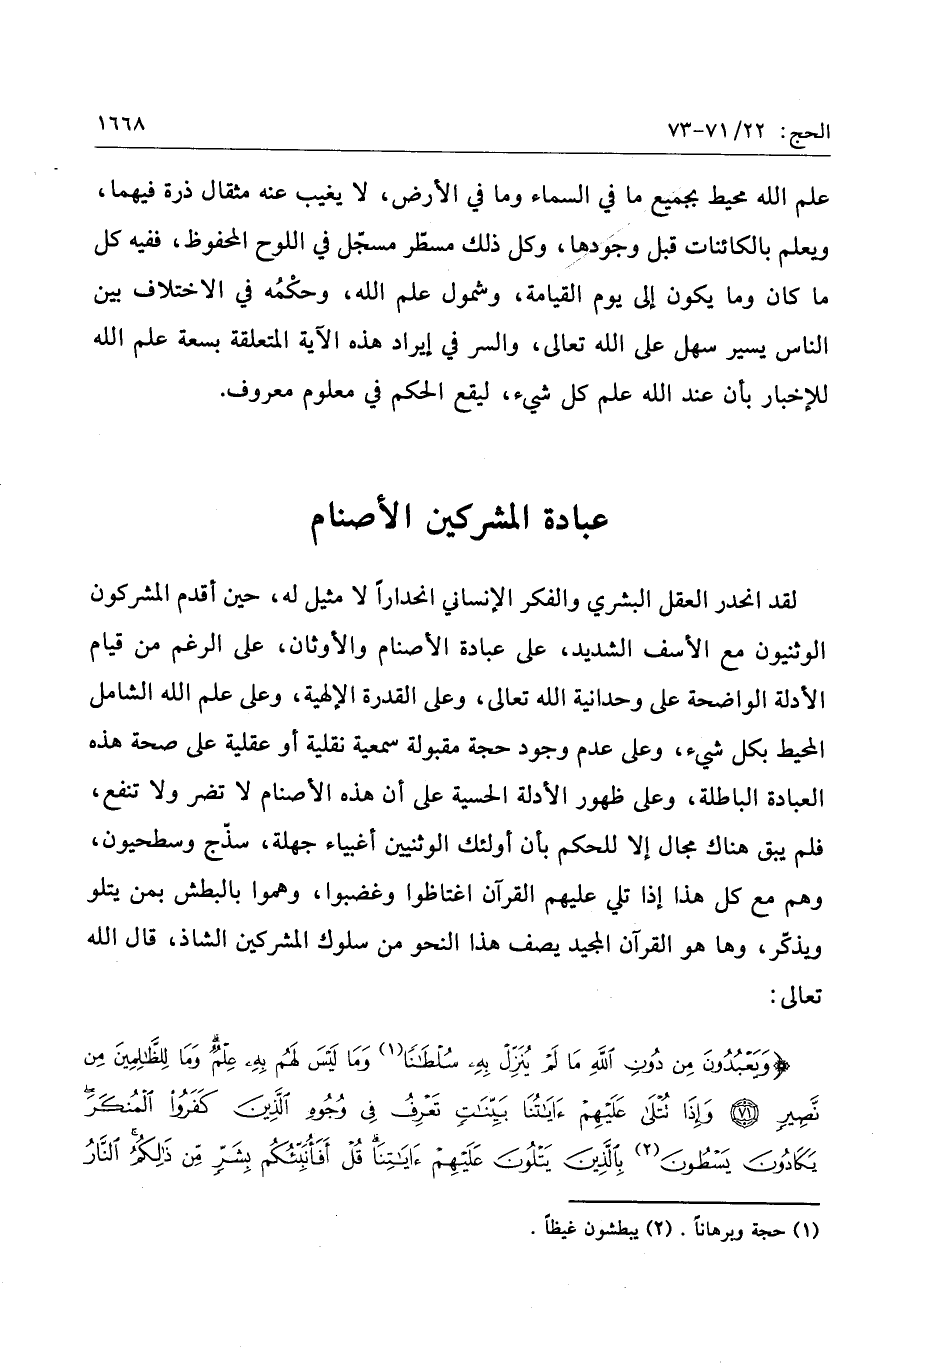 الحج: ٢٢/ ٧١-٧٣ ١٦٦٨
علم الله محيط بجميع ما في السماء وما في الأرض، لا يغيب عنه مثقال ذرة فيهما،
ويعلم بالكائنات قبل وجودها، وكل ذلك مسطّر مسجّل في اللوح المحفوظ، ففيه كل
ما كان وما يكون إلى يوم القيامة، وشمول علم الله، وحكْمُه في الاختلاف بين
الناس يسير سهل على الله تعالى، والسر في إيراد هذه الآية المتعلقة بسعة علم الله
للإخبار بأن عند الله علم كل شيء، ليقع الحكم في معلوم معروف.
عبادة المشركين الأصنام
لقد انحدر العقل البشري والفكر الإنساني انحداراً لا مثيل له، حين أقدم المشركون
الوثنيون مع الأسف الشديد، على عبادة الأصنام والأوثان، على الرغم من قيام
الأدلة الواضحة على وحدانية الله تعالى، وعلى القدرة الإلهية، وعلى علم الله الشامل
المحيط بكل شيء، وعلى عدم وجود حجة مقبولة سمعية نقلية أو عقلية على صحة هذه
العبادة الباطلة، وعلى ظهور الأدلة الحسية على أن هذه الأصنام لا تضر ولا تنفع،
فلم يبق هناك مجال إلا للحكم بأن أولئك الوثنيين أغبياء جهلة، سذّج وسطحيون،
وهم مع كل هذا إذا تلي عليهم القرآن اغتاظوا وغضبوا، وهموا بالبطش بمن يتلو
ويذكّر، وها هو القرآن المجيد يصف هذا النحو من سلوك المشركين الشاذ، قال الله
تعالى:
﴿وَيَعْبُدُونَ مِن دُونِ ٱللَّهِ مَا لَمْ يُنَزِّلْ بِهِۦ سُلْطَٰنًا(١) وَمَا لَيْسَ لَهُم بِهِۦ عِلْمٌۗ وَمَا لِلظَّٰلِمِينَ مِن
نَّصِيرٍ ﴿٧١﴾ وَإِذَا تُتْلَىٰ عَلَيْهِمْ ءَايَٰتُنَا بَيِّنَٰتٍ تَعْرِفُ فِى وُجُوهِ ٱلَّذِينَ كَفَرُواْ ٱلْمُنكَرَۖ
يَكَادُونَ يَسْطُونَ(٢) بِٱلَّذِينَ يَتْلُونَ عَلَيْهِمْ ءَايَٰتِنَاۗ قُلْ أَفَأُنَبِّئُكُم بِشَرٍّ مِّن ذَٰلِكُمُۚ ٱلنَّارُ
(١) حجة وبرهاناً . (٢) يبطشون غيظاً .